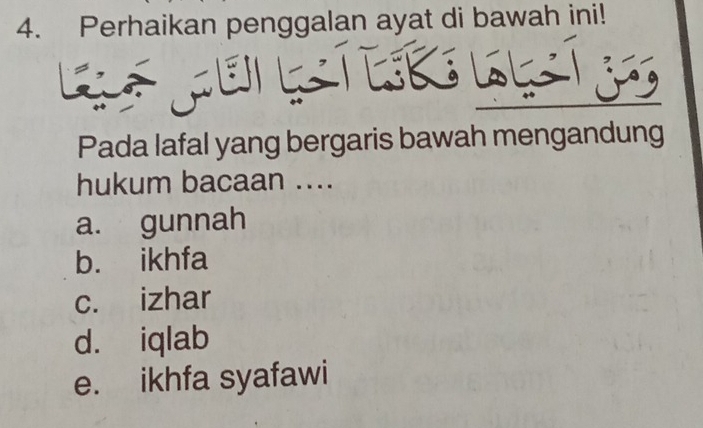 4. Perhaikan penggalan ayat di bawah ini!
وَمَنْ اَحْيَاهَا فَكَاَنَّمَآ اَحْيَا النَّاسَ جَمِيْعًا
Pada lafal yang bergaris bawah mengandung
hukum bacaan ....
a. gunnah
b. ikhfa
c. izhar
d. iqlab
e. ikhfa syafawi